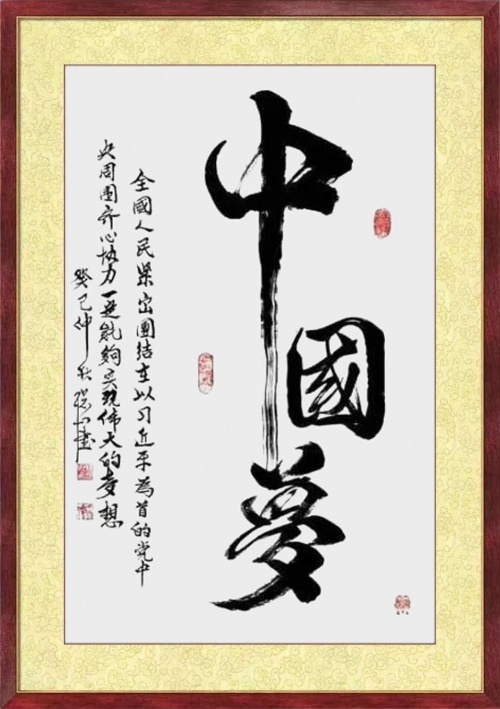 中國夢
全國人民紧密團结在以习近平為首的党中
央周围齐心协力一定能夠实现伟大的梦想
癸巳仲秋